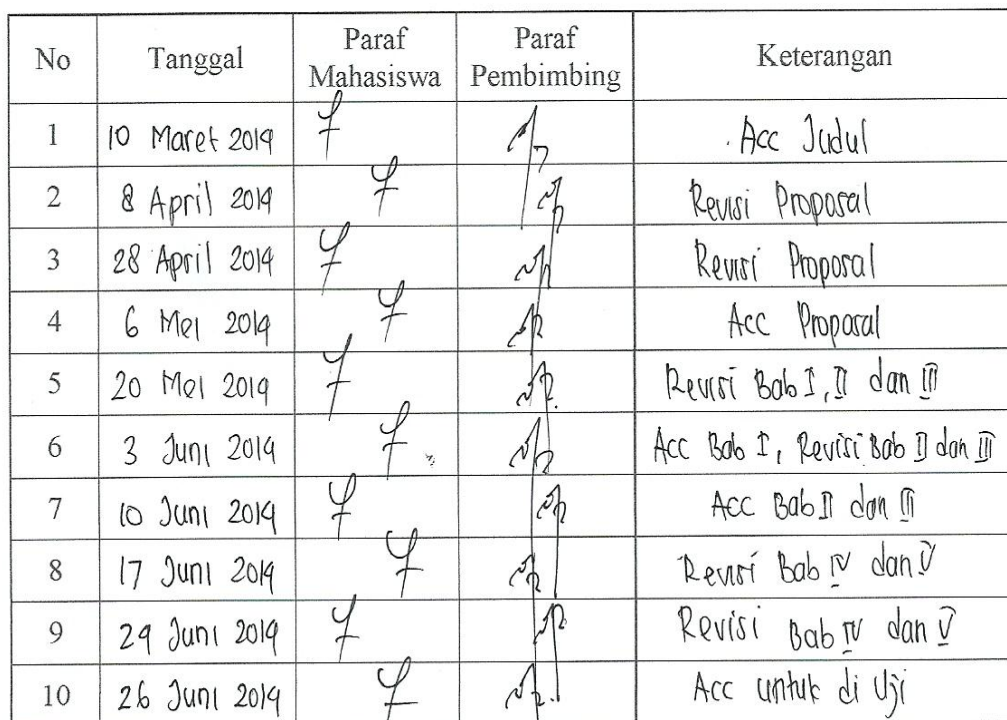 No Tanggal Paraf Mahasiswa Paraf Pembimbing Keterangan
1 10 Maret 2014 Acc Judul
2 8 April 2014 Revisi Proposal
3 28 April 2014 Revisi Proposal
4 6 Mei 2014 Acc Proposal
5 20 Mei 2014 Revisi Bab I, II dan III
6 3 Juni 2014 Acc Bab I, Revisi Bab II dan III
7 10 Juni 2014 Acc Bab II dan III
8 17 Juni 2014 Revisi Bab IV dan V
9 24 Juni 2014 Revisi Bab IV dan V
10 26 Juni 2014 Acc untuk di Uji